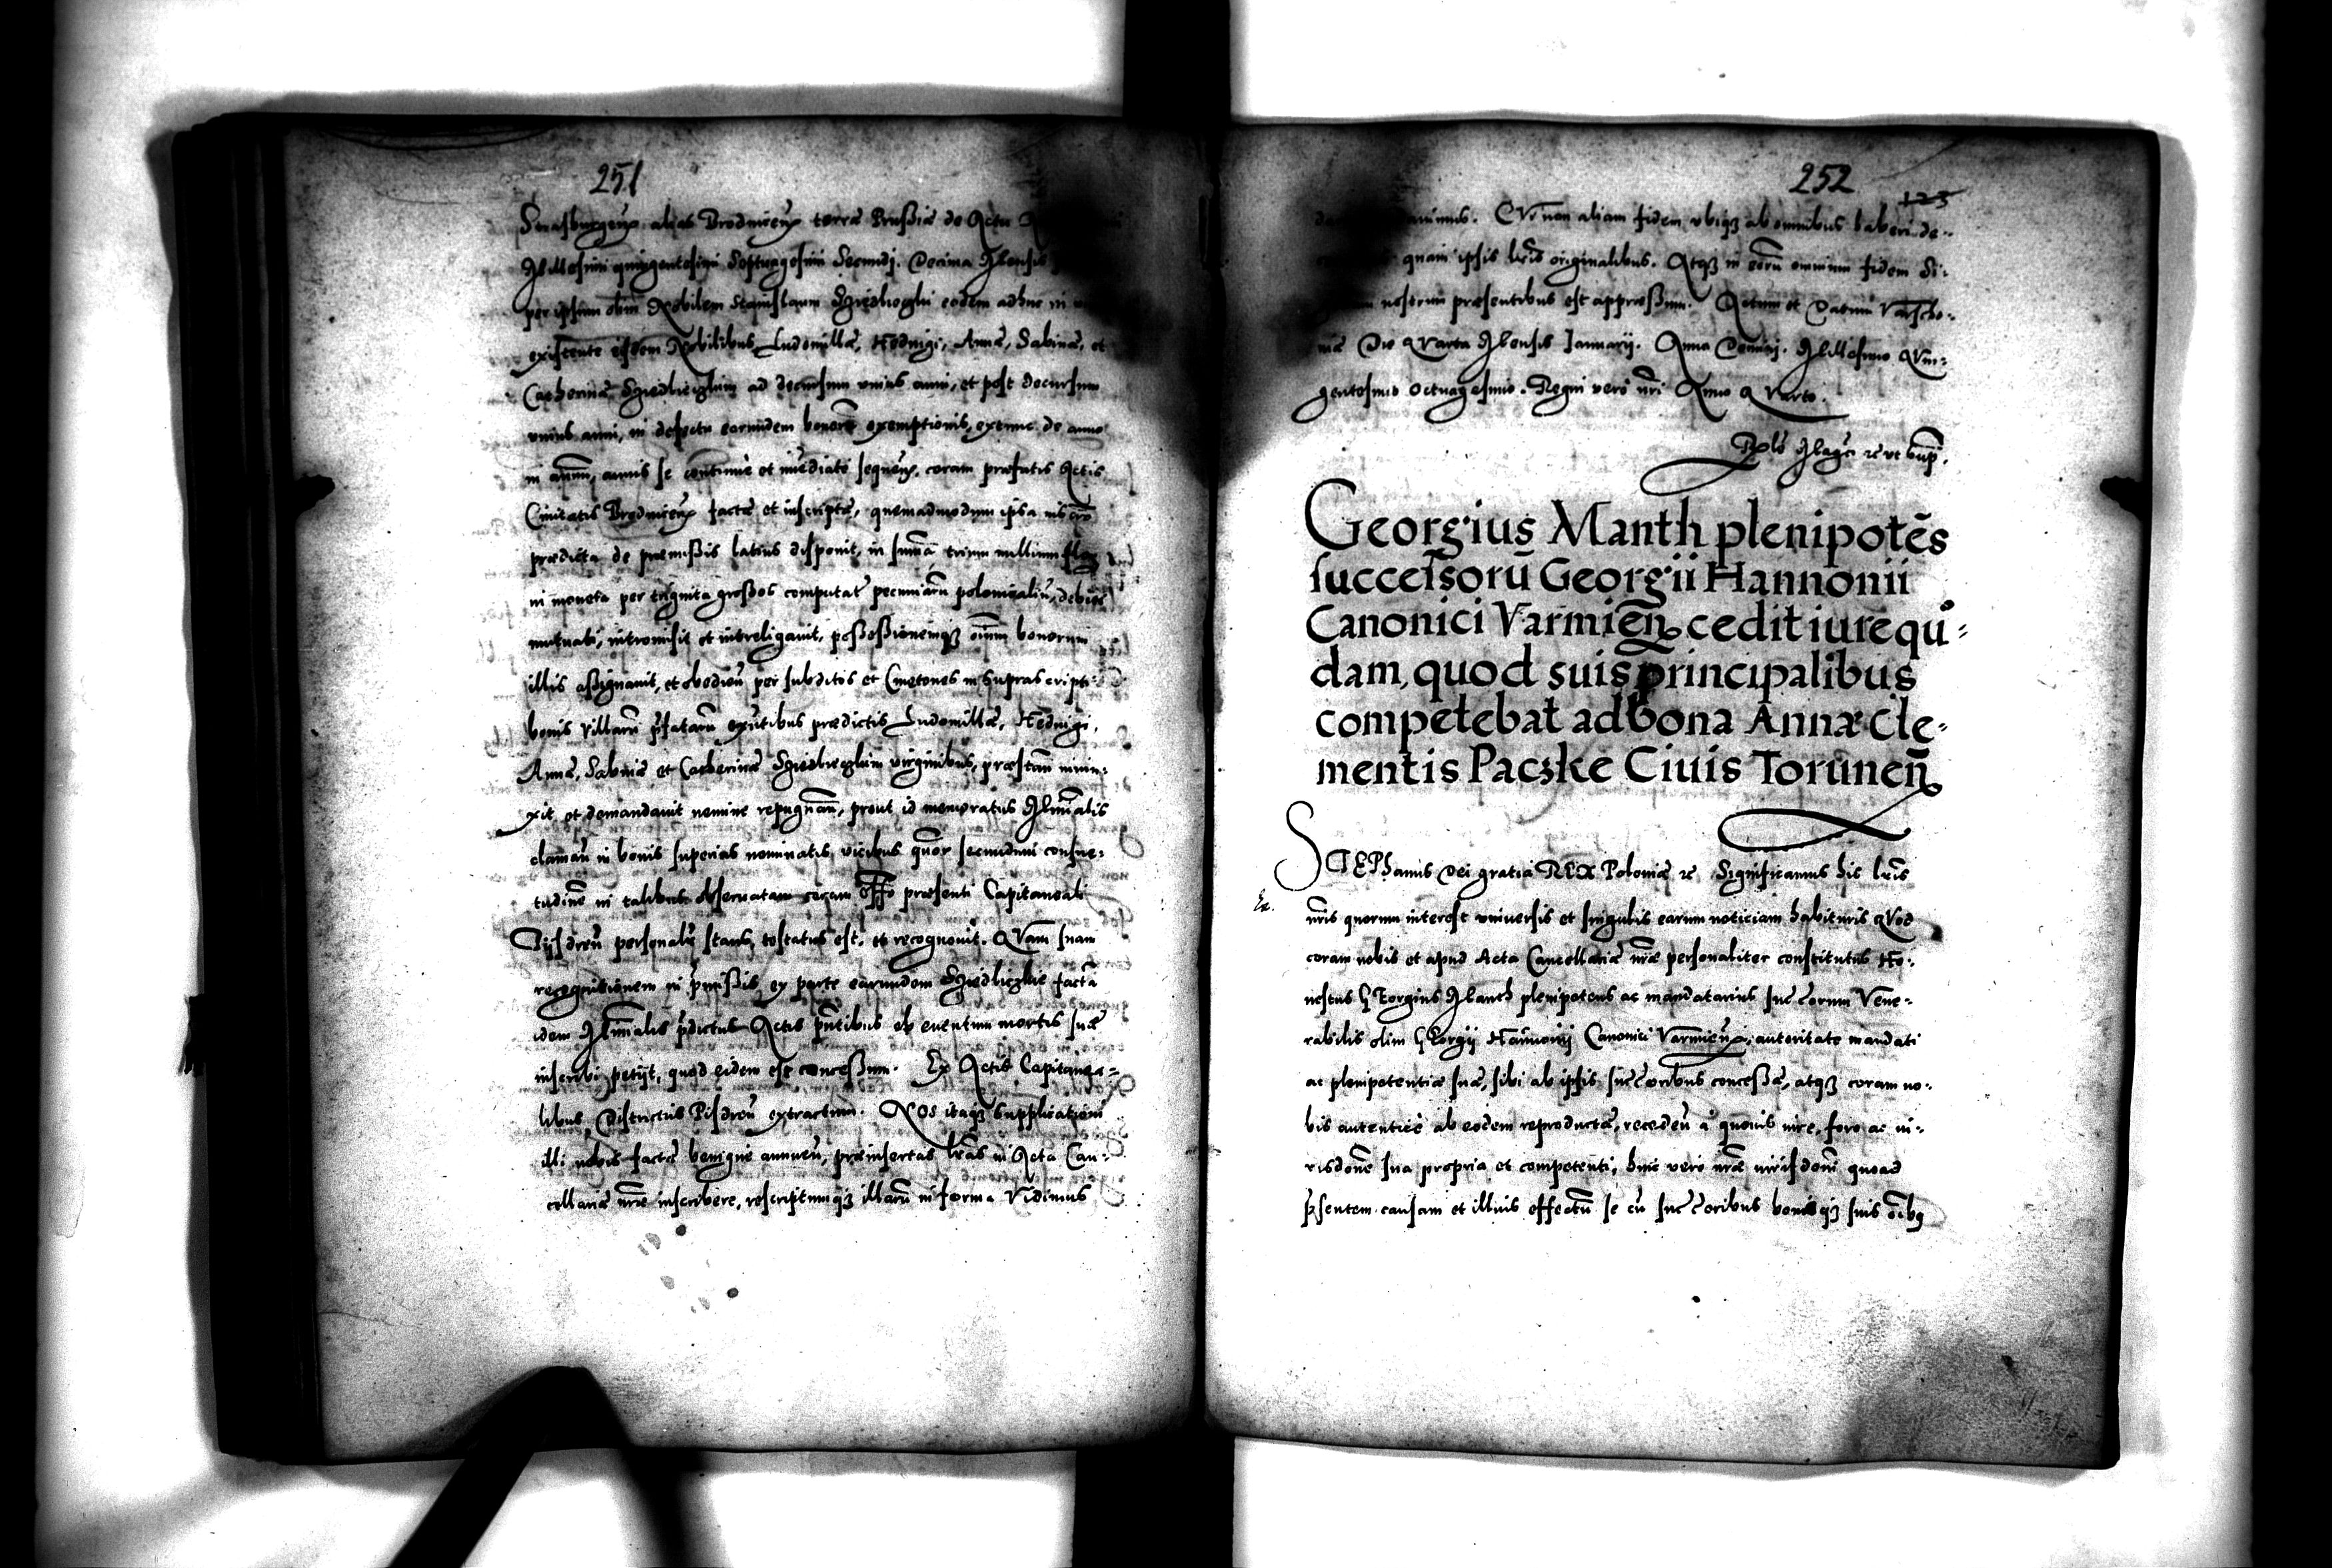 251
Strasburgeñ alias Brodniceñ terræ Prussiæ de Actu
Millesimi quingentesimi Septuagesimi Secundj. Decima Mensis
per ipsum olim Nobilem Stanislaum eodem adhuc in
existente eisdem Nobilibus Ludomillæ, Heduigi, Annæ, Sabinæ, et
Catherinæ ad decursum vnius anni, et post decursum
vnius anni, in defectu earundem bonorū exemptionis, extunc de anno
in annū, annis se continuè et īmediatè sequeñ, coram præfatis Actis
Ciuitatis Brodniceñ factæ et inscriptæ, quemadmodum ipsa inscrō
prædicta de præmissis latius disponit, in summā trium millium floz
in moneta per triginta grossos computat pecuniarū polonicaliū, debitæ
mutuatæ, intromisit et intreligauit, possessionemqȝ oīum bonorum
illis assignauit, et obedieñ per subditos et Cmetones in supra scripti=
bonis villarū pfatarū exn̄tibus prædictis Ludomillæ, Heduigi,
Annæ, Sabinæ et Catherinæ virginibus, præstañ iniun=
xit et demandauit nemine repugnañ, prout id memoratus Mīrialis
clamañ in bonis superius nominatis, vicibus quor secundum consue=
tudinē in talibus obseruatam coram Offō præsenti Capitaneali
Pijsdreñ personalr stans, testatus est, et recognouit. QVam suam
recognitionem in pmissis ex parte earundem factā
idem Mīrialis pdictus Actis pn̄tibus ob euentum mortis suæ
inscribi petijt, quod eidem est concessum. Ex Actis Capitanea=
libus Districtus Pisdreñ extractum. NOS itaqȝ supplicationi
illi nobis factæ benignè annueñ, præinsertas lr̄as in Acta Can=
cellariæ nr̄æ inscribere, rescriptumqȝ illarū in forma Vidimus
252
123
auimus. CVi non aliam fidem vbiqȝ ab omnibus haberi de=
quam ipsis lr̄is originalibus. Atqȝ in eorū omnium fidem Si=
nostrum præsentibus est appressum. Actum et Datum Varscho=
uiæ Die QVarta Mensis Januarij. Anno Dominj. Millesimo QVin=
gentesimo Octuagesimo. Regni verò nr̄i Anno QVarto.
Georgius Manth plenipotēs
successorū Georgii Hannonii
Canonici Varmieñ cedit iure quo=
dam, quod suis principalibus
competebat ad bona Annæ Cle=
mentis Paczke Ciuis Toruneñ
STEPhanus Dei gratia REX Poloniæ ꝛc Significamus his lr̄is
nr̄is quorum interest vniuersis et singulis earum noticiam habituris QVod
coram nobis et apud Acta Cancellariæ nr̄æ personaliter constitutus Ho=
nestus GEorgius Manth plenipotens ac mandatarius succ̄orum Vene=
rabilis olim GEorgij Hannonij Canonici Varmieñ, autoritate mandati
ac plenipotentiæ suæ, sibi ab ipsis succ̄oribus concessæ, atqȝ coram no=
bis autenticè ab eodem reproductæ, recedeñ à quouis iure, foro ac iu=
risdōne sua propria et competenti, huic verò nr̄æ iurisdōni quoad
psentem causam et illius effectū se cū succ̄oribus bonisqȝ suis oībꝰ